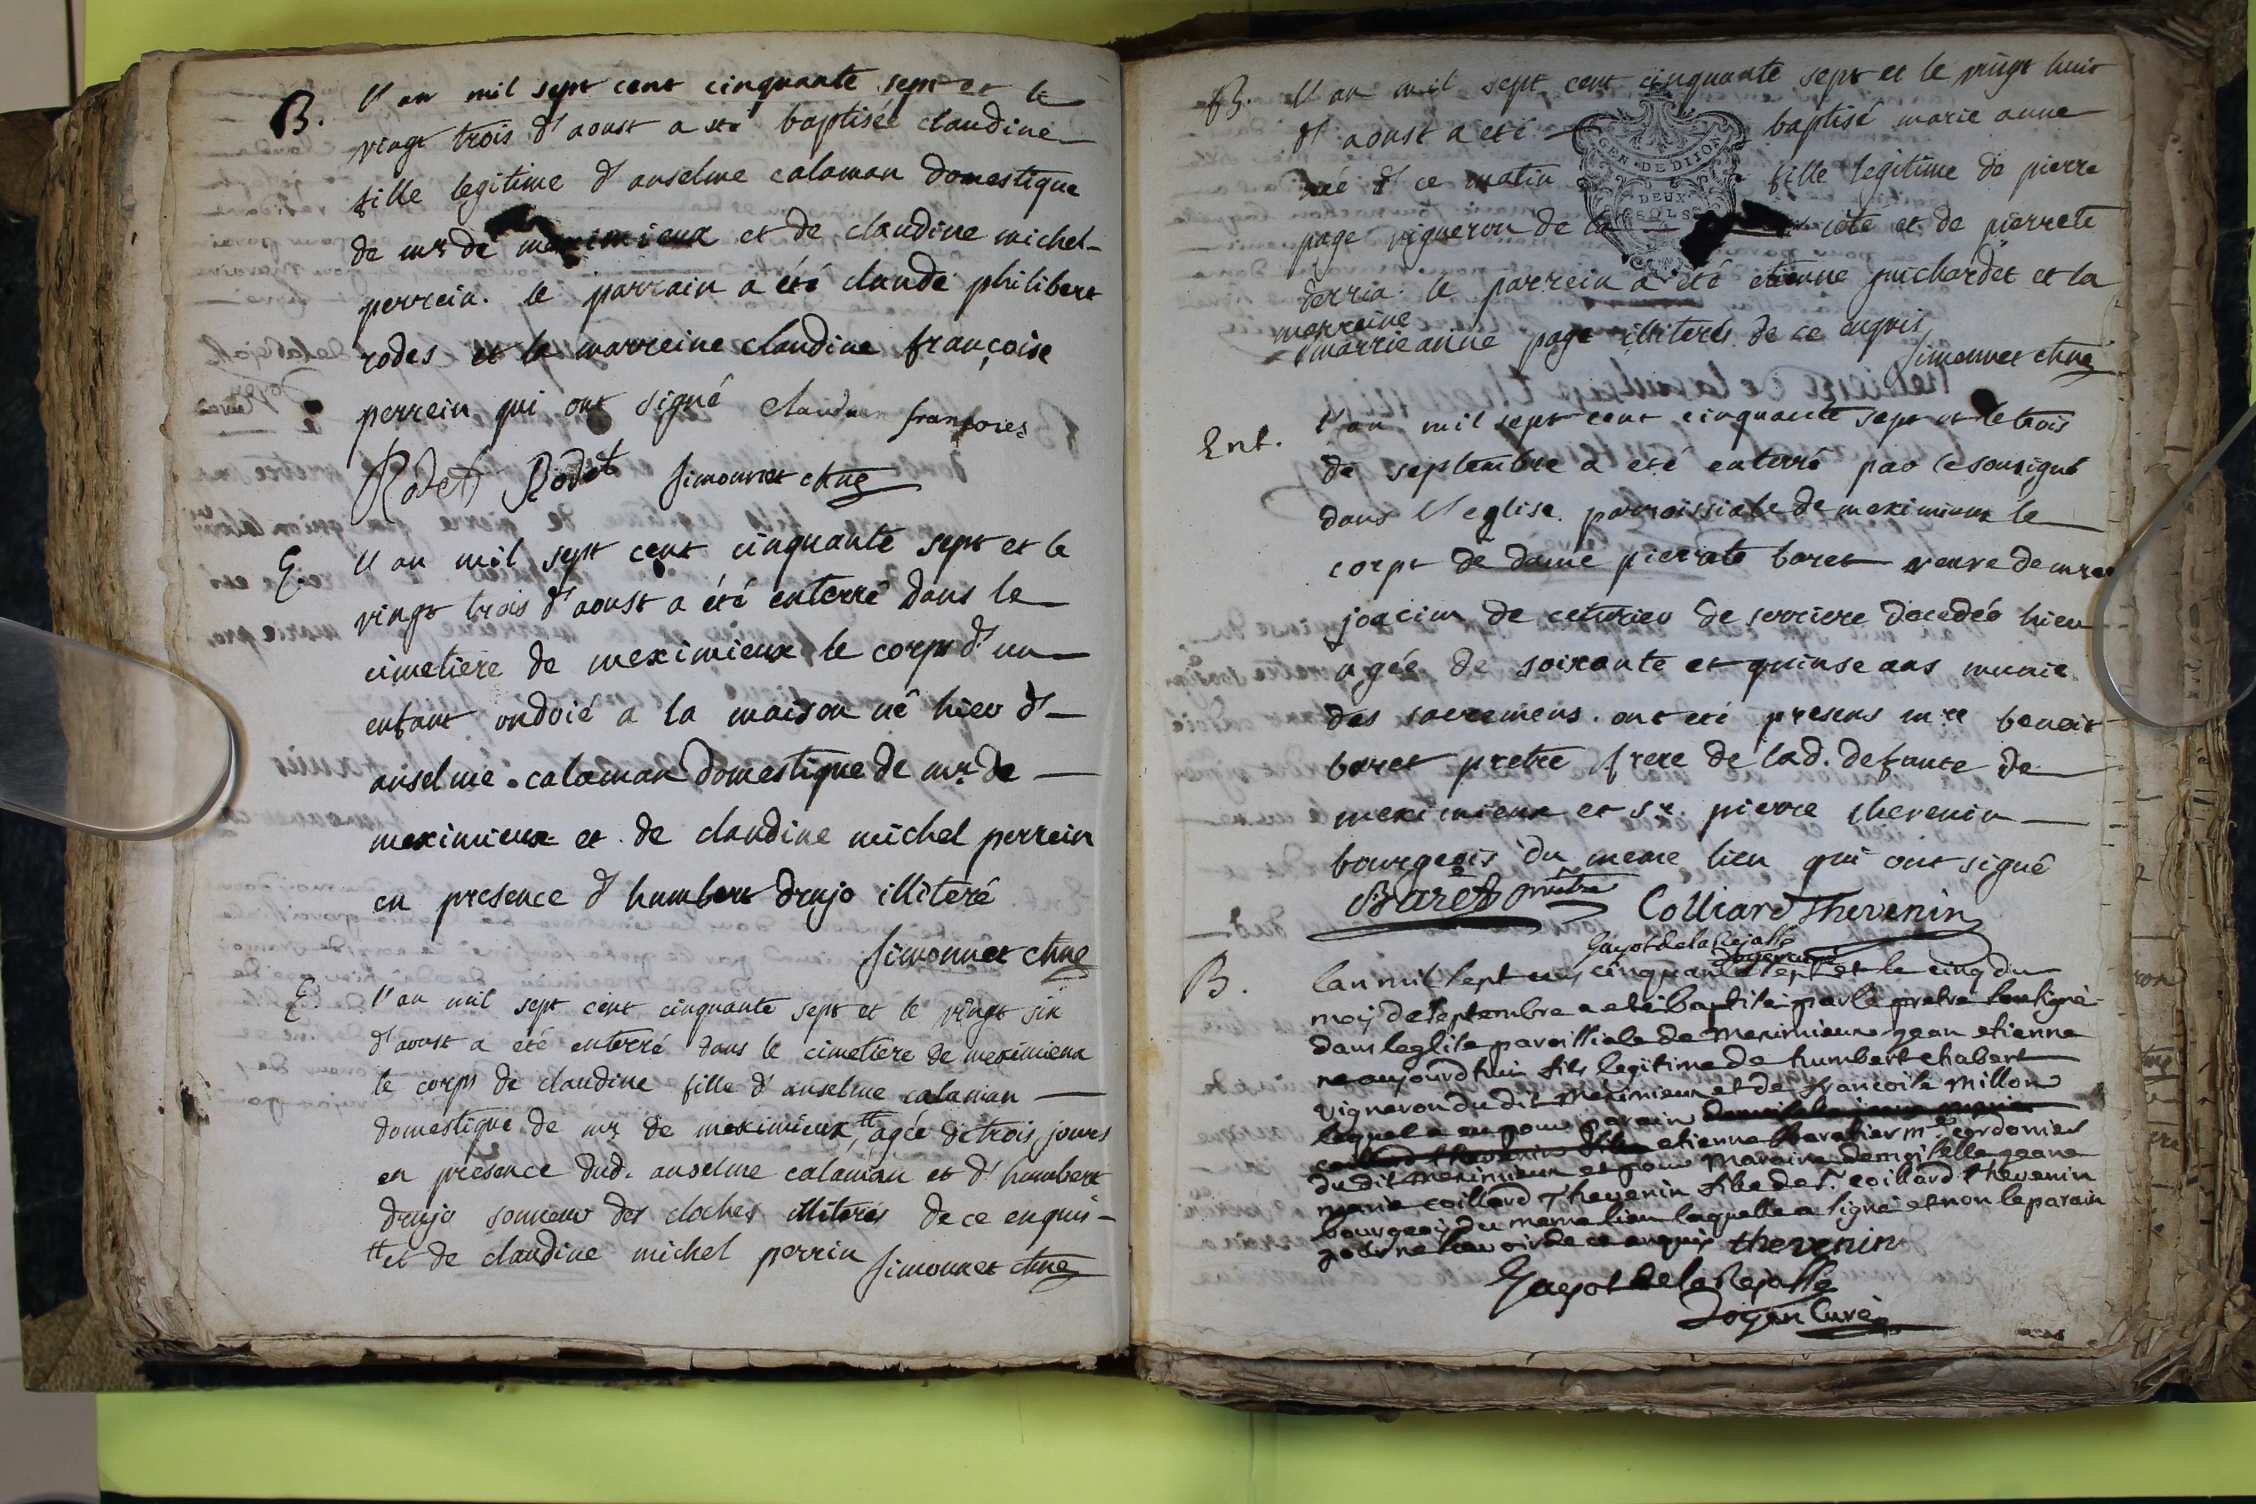 B. l'an mil sept cent cinquante sept et le
vingt trois d'aoust a eté baptisée claudine
fille legitime d'anselme calaman domestique
de mr de meximieux et de claudine michel
perrein. le parrain a été claude philibert
rodes et la marreine claudine françoise
perrein qui ont signé claudine françoies
Rodet Rodet simonnet
E. l'an mil sept cent cinquante sept et le
vingt trois d'aoust a été enterré dans le
cimetiere de meximieux le corps d'un
enfant ondoié a la maison né hier d'
anselme calaman domestique de mr. de
meximieux et de claudine michel perrein
en presence d'humbert drujo illiteré
simonnet
E. l'an mil sept cent cinquante sept et le vingt six
d'aoust a été enterré dans le cimetiere de meximieux
le corps de claudine fille d'anselme calaman
domestique de mr de meximieux, tt agée de trois jours
en presence dud. anselme calaman et d'humbert
drujo sonneur des cloches illiterés de ce enquis
tt et de claudine michel perrin simonnet
B. l'an mil sept cent cinquante sept et le vingt huit
d'aoust a eté baptisé marie anne
née d ce matin fille legitime de pierre
page vigneron de la cote et de pierrete
derria. le parrein a été etienne guichardet et la
marreine
marrie anne page illiterés de ce enquis
simonnet
GEN. DE DIJON
DEUX
SOLS
Ent. l'an mil sept cent cinquante sept et le trois
de septembre a eté enterré par le sousigné
dans l'eglise parroissiale de meximieux le
corps de dame pierrete baret veuve de mre
joacim de de serriere decedée hier
agée de soixante et quinse ans munie
des sacremens. ont eté presens mre benoit
baret pretre frere de lad. defunte de
meximieux et sr. pierre thevenin
bourgeois du meme lieu qui ont signé
Baret prêtre Colliard Thevenin
Gayot de la Rejasse
doyen curé
B. lan mil sept cens cinquante sept et le cinq du
mois de septembre a eté baptisé par le pretre sousigné
dans leglise paroissiale de meximieux jean etienne
ne aujourdhui fils legitime de humbert chabert
vigneron du dit meximieux et de francoise millon
lequel a eu pour parain demoiselle jeane marie
coillard thevenin fille etienne me cordonier
du dit meximieux et pour maraine demoiselle jeane
marie coillard Thevenin fille de sr. coillard thevenin
bourgeois du meme lieu laquelle a signé et non le parain
pour ne savoir de ce enquis thevenin
Gayot de la Rejasse
doyen Curé